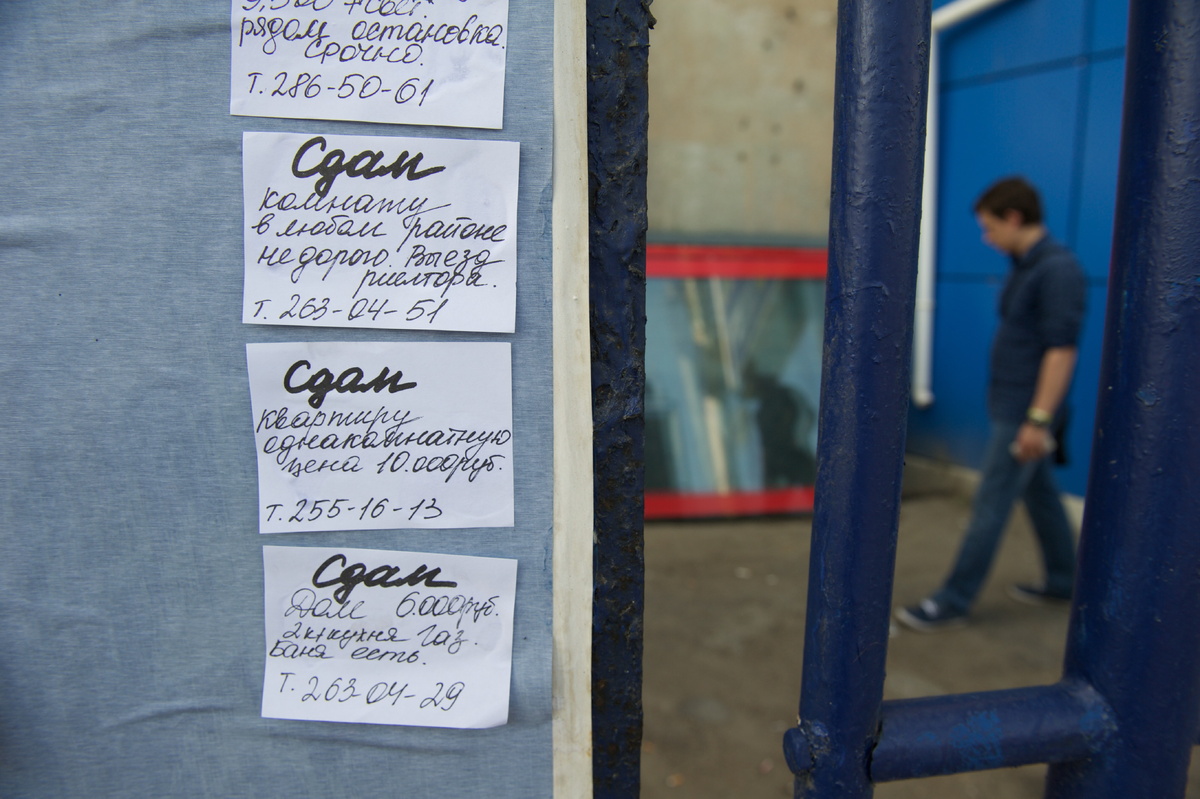 рядом остановка.
срочно.
т. 286-50-61
Сдам
комнату
в любом районе
не дорого. Выезд
риелтора.
т. 263-04-51
Сдам
квартиру
однакомнатную
цена 10.000руб.
т. 255-16-13
Сдам
Дом 6.000руб.
2к+кухня Газ.
Баня есть.
Т. 263-04-29